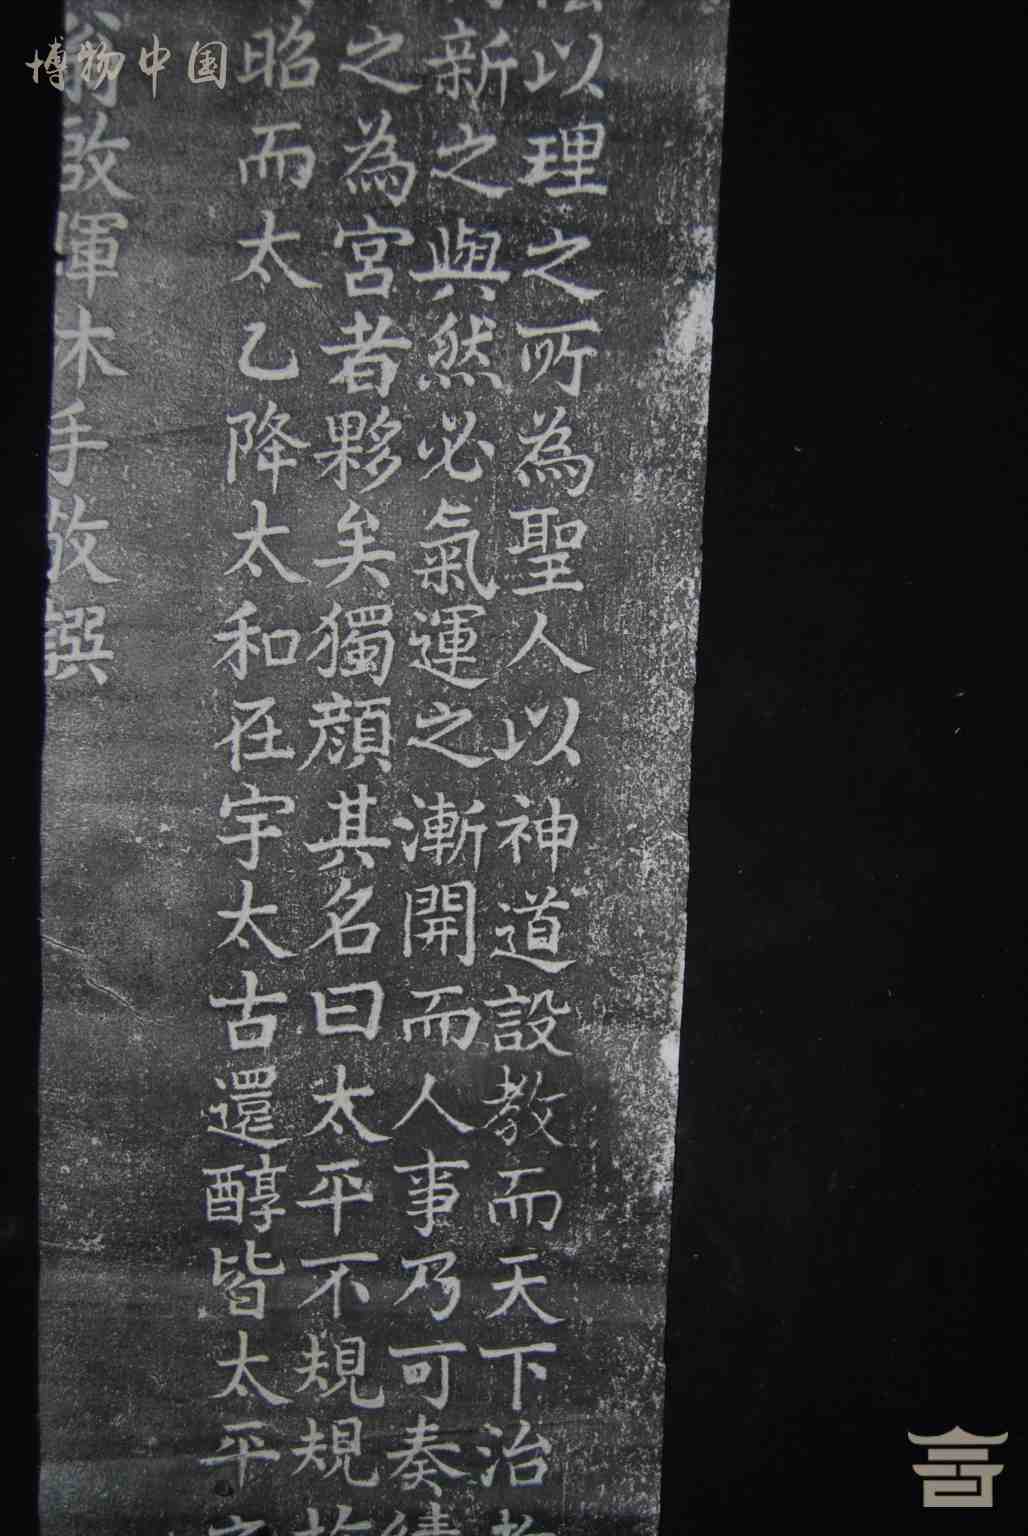 博物中国
以理之所為聖人以神道設教而天下治
新之與然必氣運之漸開而人事乃可奏績
之為宮者夥矣獨顏其名曰太平不規規
昭而太乙降太和在宇太古還醇皆太平
啟暉沐手敬撰